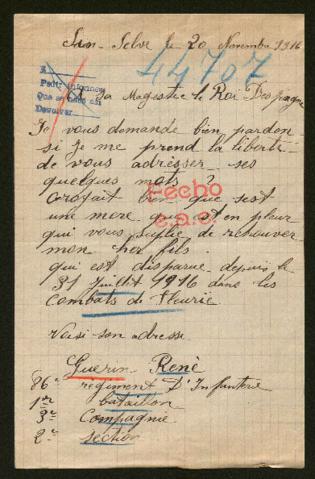 San-Selve le 20 Novembre 1916
44707
A sa Magestrie le Roi Despagne
Je vous demande bien pardon
si je me prend la liberté
de vous adresser ses
quelques mots ?
Croyait bien que sest
une mere qui est en pleur
qui vous suplie de retrouver
mon cher fils.
qui est disparue depuis le
31 Juillet 1916 dans les
Combats de Fleurie
Hecho
e.a.c.
Voisi son adresse
Guerin René
86e regiment D'Infanterie
1er bataillon
3e Compagnie
2e section